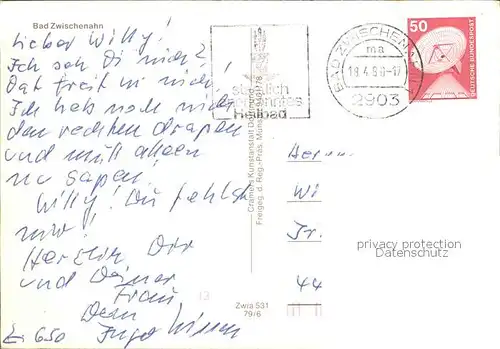 Bad Zwischenahn
Lieber Willy!
Ich seh Di nich?
Dat freit mi nich!
Ich heb noch nich
den rechten drapen
und mutt alleen
no sapen!
Willy! Du fehlst
mir!
Herzlin Dir
und Deiner
Frau
Dein
Ingo
E: 650
staatlich
anerkanntes
Heilbad
BAD ZWISCHENAHN
ma
18.4.90-17
2903
50
DEUTSCHE BUNDESPOST
Cramers Kunstanstalt Dortmund
Freigeg. d. Reg.-Präs. Münster
Herrn
Wi
Fr.
44
privacy protection
Datenschutz
13
Zwa 531
79/6